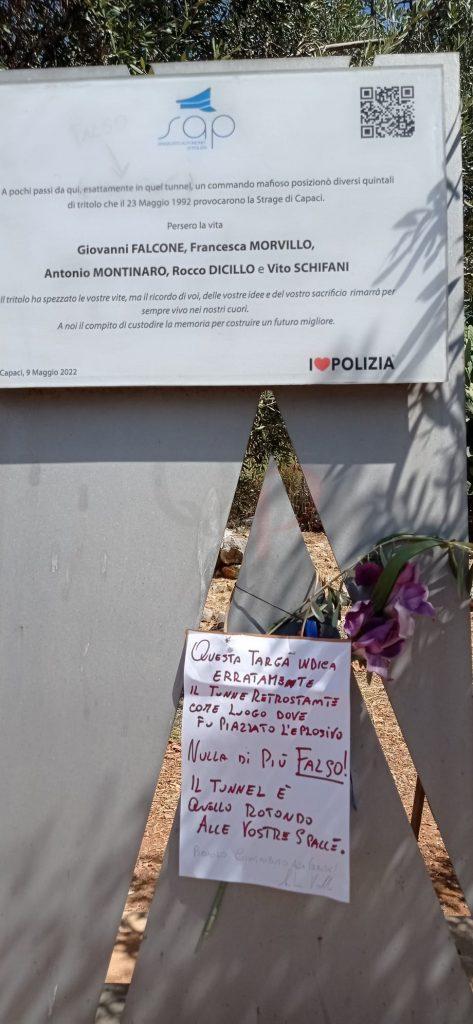 FALSO
sap
A pochi passi da qui, esattamente in quel tunnel, un commando mafioso posizionò diversi quintali
di tritolo che il 23 Maggio 1992 provocarono la Strage di Capaci.
Persero la vita
Giovanni FALCONE, Francesca MORVILLO,
Antonio MONTINARO, Rocco DICILLO e Vito SCHIFANI
Il tritolo ha spezzato le vostre vite, ma il ricordo di voi, delle vostre idee e del vostro sacrificio rimarrà per
sempre vivo nei nostri cuori.
A noi il compito di custodire la memoria per costruire un futuro migliore.
Capaci, 9 Maggio 2022
I❤POLIZIA
QUESTA TARGA INDICA
ERRATAMENTE
IL TUNNE RETROSTANTE
COME LUOGO DOVE
FU PIAZZATO L'EPLOSIVO
NULLA DI PIÙ FALSO!
IL TUNNEL È
QUELLO ROTONDO
ALLE VOSTRE SPALLE.